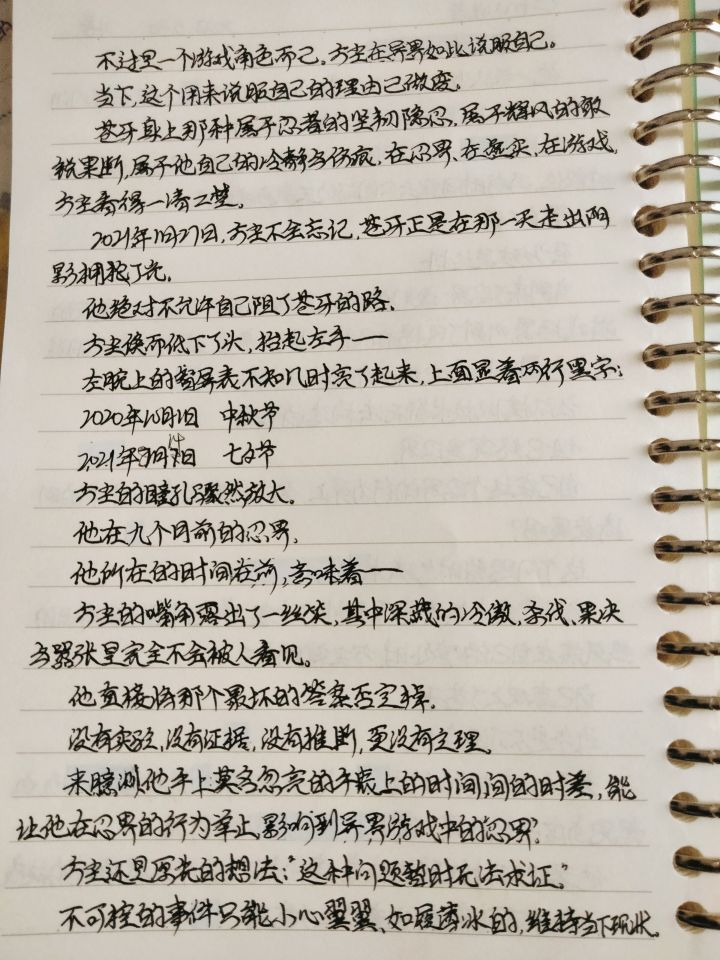 不过是一个游戏角色而已。方尘在异界如此说服自己。
当下,这个用来说服自己的理由已微废。
苍牙身上那种属于忍者的坚韧隐忍,属于辉风的敢
就果断,属于他自己的冷静与伤痕,在忍界、在虚实、在游戏,
方尘看得一清二楚。
2021年1月27日,方尘不会忘记,苍牙正是在那一天走出阴
影拥抱了光。
他绝对不允许自己阻了苍牙的路。
方尘倏而低下了头,抬起左手——
左腕上的智屏表不知几时亮了起来,上面显着两行黑字:
2020年10月1日 中秋节
2021年8月14日 七夕节
方尘的瞳孔骤然放大。
他在九个月前的忍界,
他所在的时间在前,意味着——
方尘的嘴角露出了一丝笑,其中深藏的冷傲、杀伐、果决
与嚣张是完全不会被人看见。
他直接将那个最坏的答案否定掉。
没有实验,没有证据,没有推断,更没有定理。
来臆测他手上莫名忽亮的手表上的时间间的时差,能
让他在忍界的行为举止影响到异界游戏中的忍界?
方尘还是原先的想法:“这种问题暂时无法求证。”
不可控的事件只能小心翼翼、如履薄冰的,维持当下现状。